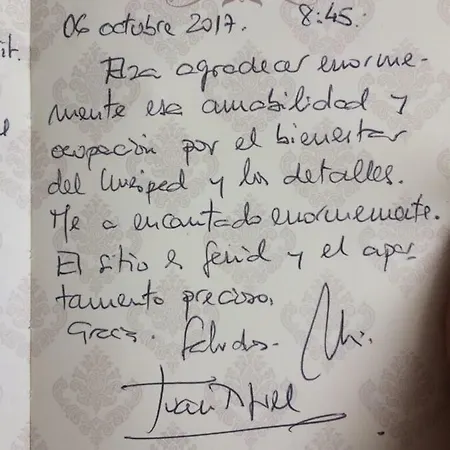 06 octubre 2017. 8:45.
Elza agradecer enorme-
mente esa amabilidad y
ocupación por el bienestar
del huesped y los detalles.
Me a encantado enormemente.
El sitio es genial y el apar
tamento precioso.
Gracias. Saludos.
Juan